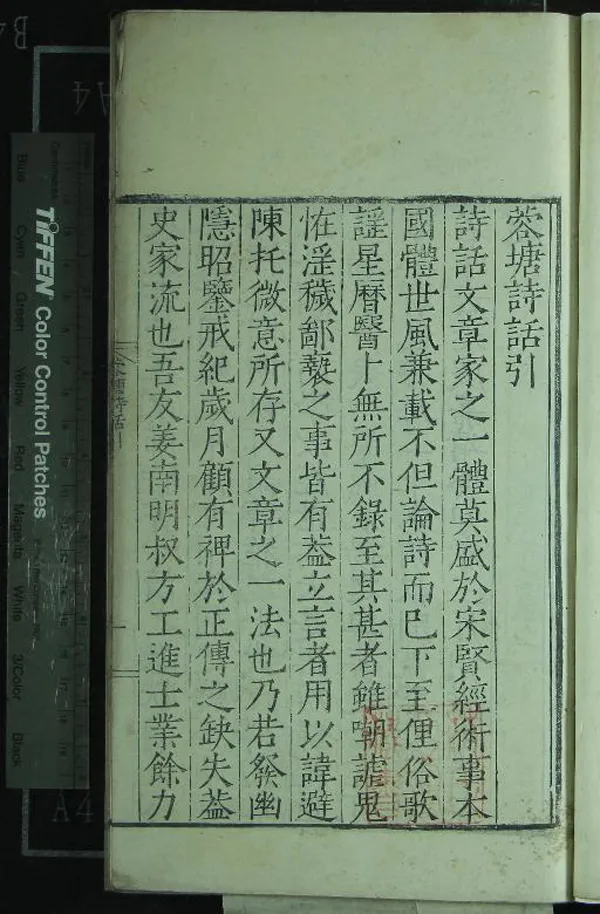 蓉塘詩話引
詩話文章家之一體莫盛於宋賢經術事本
國體世風兼載不但論詩而已下至俚俗歌
謡星曆醫卜無所不錄至其甚者雖嘲謔鬼
怪淫穢鄙褻之事皆有葢立言者用以諱避
陳托微意所存又文章之一法也乃若發幽
隱昭鑒戒紀歲月顧有裨於正傳之缺失葢
史家流也吾友姜南明叔方工進士業餘力
TIFFEN Color Control Patches
Blue Cyan Green Yellow Red Magenta White 3/Color Black
Centimetres
B4
A4
A4